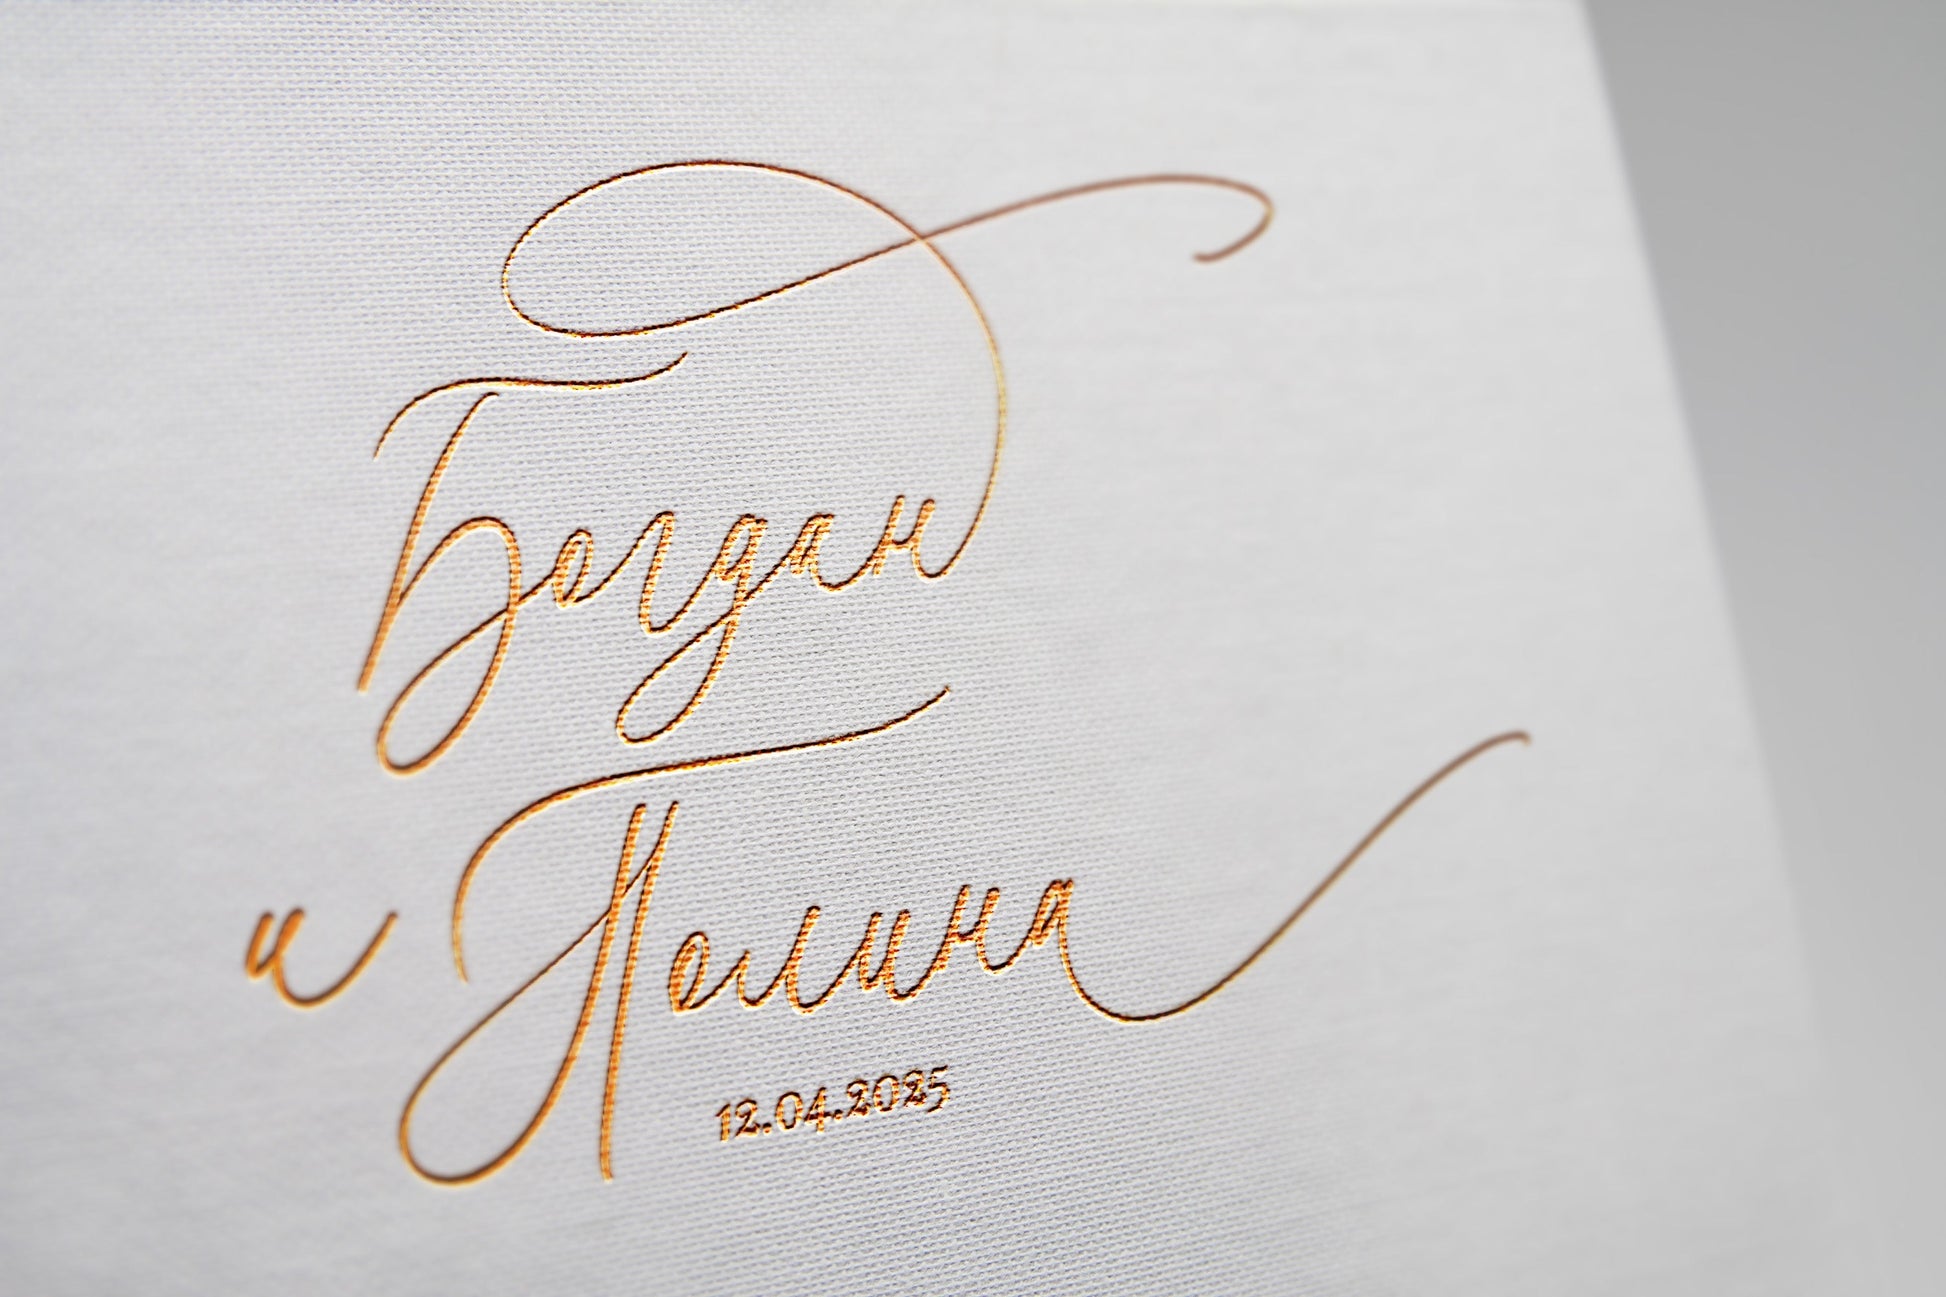 Богдан
и Полина
12.04.2025